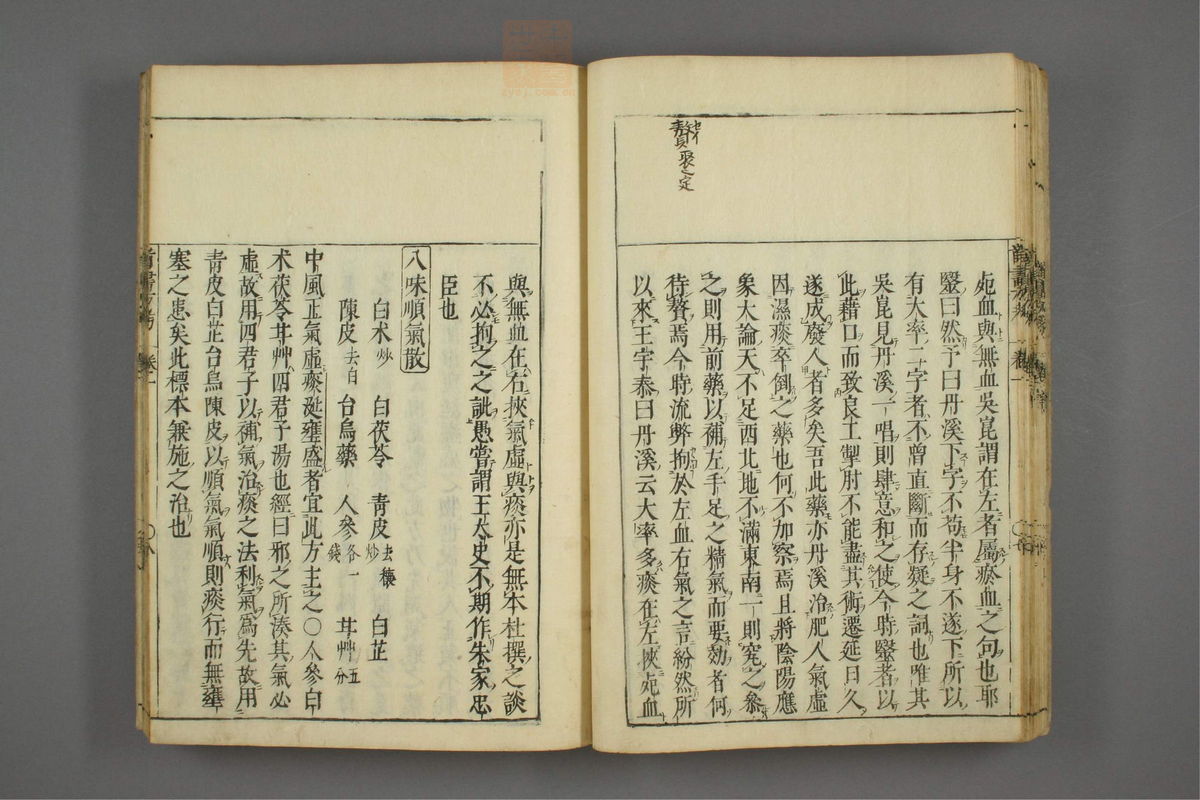 贅聚之定
死血與無血吳崑謂在左者屬瘀血之句也耶
醫曰然予曰丹溪下字不苟半身不遂下所以
有大率二字者不曾直斷而存疑之詞也唯其
吳崑見丹溪一唱則肆意和之使今時醫者以
此藉口而致良工掣肘不能盡其術遷延日久
遂成廢人者多矣吾此藥亦丹溪治肥人氣虛
因濕痰卒倒之藥也何不加察焉且將陰陽應
象大論天不足西北地不滿東南一則究之參
之則用前藥以補左手足之精氣而要効者何
待贅焉今時流弊拘於左血右氣之言紛然所
以來王宇泰曰丹溪云大率多痰在左挾死血
與無血在右挾氣虛與痰亦是無本杜撰之談
不必拘之之訛愚嘗謂王太史不期作朱家忠
臣也
八味順氣散
白朮炒 白茯苓 青皮去穰炒 白芷
陳皮去白 台烏藥 人參各一錢 甘艸五分
中風正氣虛痰涎壅盛者宜此方主之〇人參白
朮茯苓甘艸四君子湯也經曰邪之所湊其氣必
虛故用四君子以補氣治痰之法利氣為先故用
青皮白芷台烏陳皮以順氣氣順則痰行而無壅
塞之患矣此標本兼施之治也
卷一